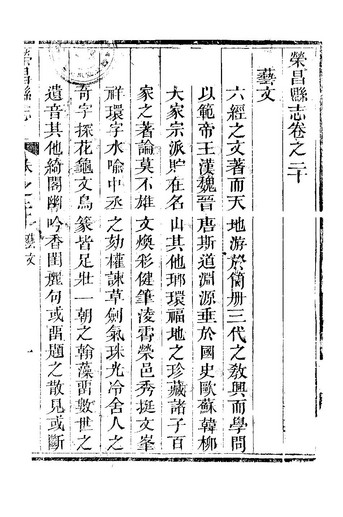 榮昌縣志卷之二十
藝文
六經之文著而天地游於簡册三代之教興而學問
以範帝王漢魏晉唐斯道淵源垂於國史歐蘇韓柳
大家宗派貯在名山其他瑯環福地之珍藏諸子百
家之著論莫不雄文煥彩健筆凌霄榮邑秀挺文峯
祥環字水喻中丞之劾權諫草劍氣珠光冷舍人之
奇字探花龜文鳥篆皆足壯一朝之翰藻畱數世之
遺音其他綺閣幽吟香閨麗句或畱題之散見或斷
榮昌縣志
卷之二十 藝文
一